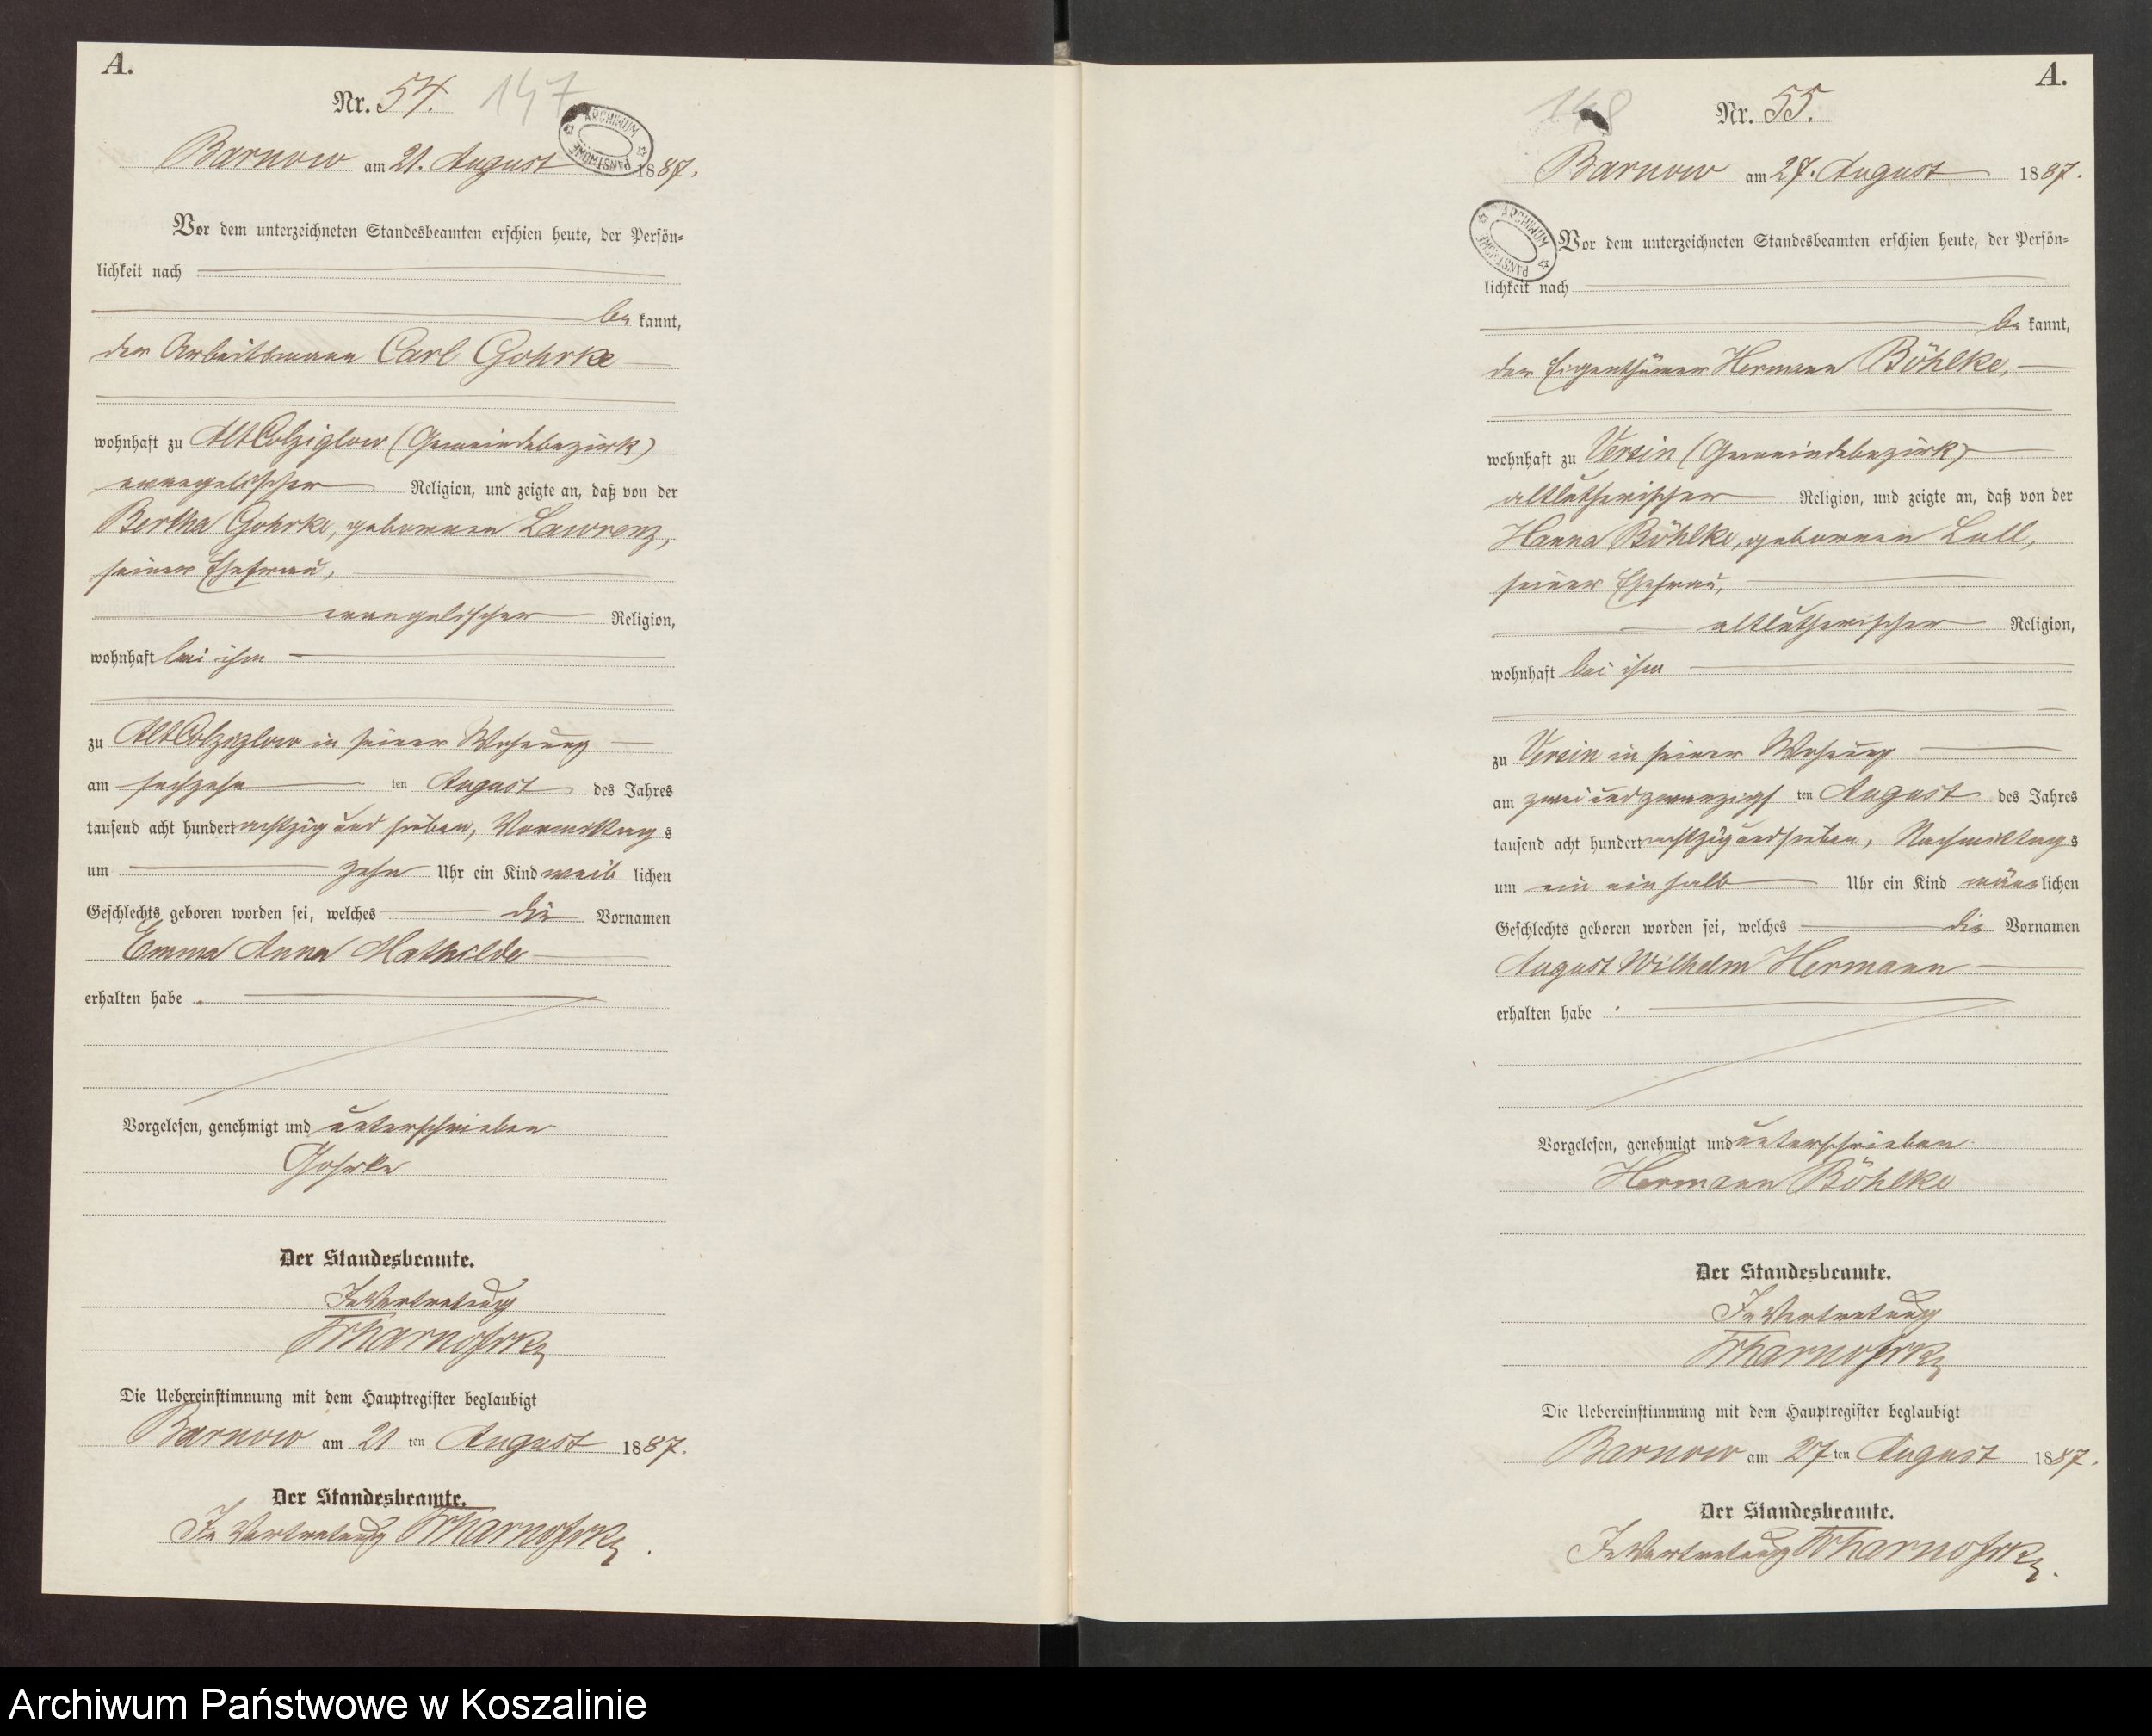 A.
Nr. 54. 147
ARCHIWUM PAŃSTWOWE
Barnow am 21. August 1887.
Vor dem unterzeichneten Standesbeamten erschien heute, der Persön=
lichkeit nach
be kannt,
der Arbeitsmann Carl Gohrke
wohnhaft zu Alt Colziglow (Gemeindebezirk)
evangelischer Religion, und zeigte an, daß von der
Bertha Gohrke, geborenen Lawrenz,
seiner Ehefrau,
evangelischer Religion,
wohnhaft bei ihm
zu Alt Colziglow in seiner Wohnung
am sechzehn ten August des Jahres
tausend acht hundert achtzig und sieben, Vormittag s
um zehn Uhr ein Kind weib lichen
Geschlechts geboren worden sei, welches die Vornamen
Emma Anna Mathilde
erhalten habe .
Vorgelesen, genehmigt und unterschrieben
Gohrke
Der Standesbeamte.
In Vertretung
Die Uebereinstimmung mit dem Hauptregister beglaubigt
Barnow am 21 ten August 1887.
Der Standesbeamte.
In Vertretung
A.
148 Nr. 55.
Barnow am 27. August 1887.
ARCHIWUM PAŃSTWOWE
Vor dem unterzeichneten Standesbeamten erschien heute, der Persön=
lichkeit nach
be kannt,
der Eigenthümer Hermann Böhlke,
wohnhaft zu Versin (Gemeindebezirk)
altlutherischer Religion, und zeigte an, daß von der
Hanna Böhlke, geborenen Lull,
seiner Ehefrau,
altlutherischer Religion,
wohnhaft bei ihm
zu Versin in seiner Wohnung
am zwei und zwanzigs ten August des Jahres
tausend acht hundert achtzig und sieben, Nachmittag s
um ein ein halb Uhr ein Kind männ lichen
Geschlechts geboren worden sei, welches die Vornamen
August Wilhelm Hermann
erhalten habe .
Vorgelesen, genehmigt und unterschrieben
Hermann Böhlke
Der Standesbeamte.
In Vertretung
Die Uebereinstimmung mit dem Hauptregister beglaubigt
Barnow am 27 ten August 1887.
Der Standesbeamte.
In Vertretung
Archiwum Państwowe w Koszalinie